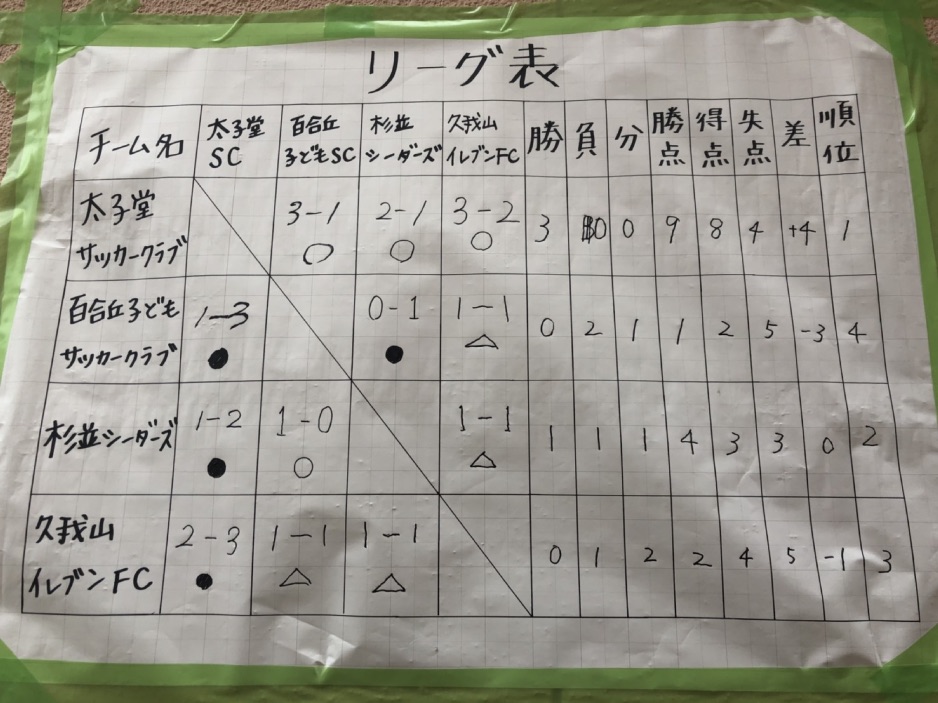 リーグ表
チーム名 太子堂SC 百合丘子どもSC 杉並シーダーズ 久我山イレブンFC 勝 負 分 勝点 得点 失点 差 順位
太子堂サッカークラブ 3-1 ○ 2-1 ○ 3-2 ○ 3 0 0 9 8 4 +4 1
百合丘子どもサッカークラブ 1-3 ● 0-1 ● 1-1 △ 0 2 1 1 2 5 -3 4
杉並シーダーズ 1-2 ● 1-0 ○ 1-1 △ 1 1 1 4 3 3 0 2
久我山イレブンFC 2-3 ● 1-1 △ 1-1 △ 0 1 2 2 4 5 -1 3